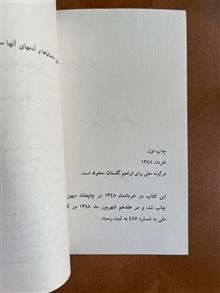 داستان‌ها و آدمهای آنها
چاپ اول
خرداد ۱۳۴۸
هرگونه حقی برای ابراهیم گلستان محفوظ است.
این کتاب در خردادماه ۱۳۴۸ در چاپخانه میهن
چاپ شد و در هفدهم شهریور ماه ۱۳۴۸ در
ملی به شماره ۴۸۵ به ثبت رسید.